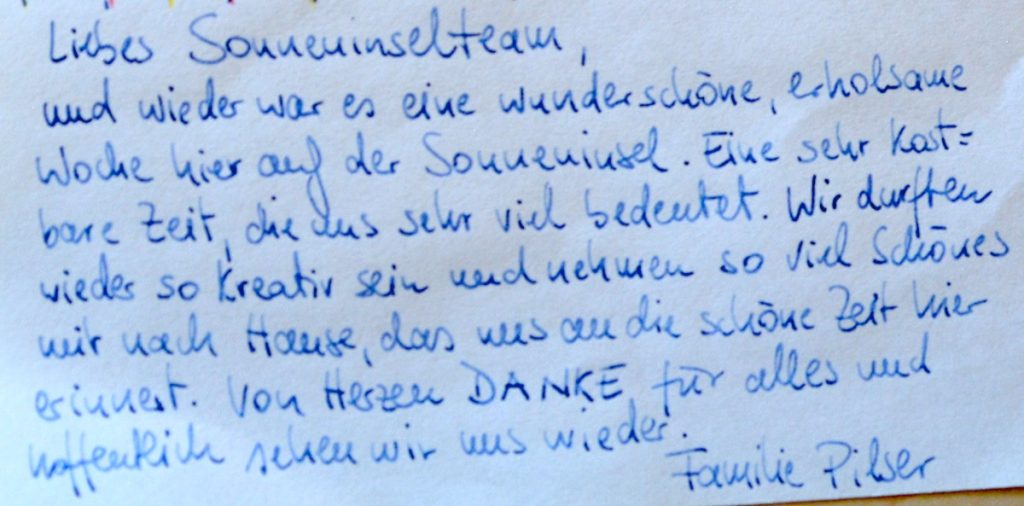 Liebes Sonneninselteam,
und wieder war es eine wunderschöne, erholsame
Woche hier auf der Sonneninsel. Eine sehr kost=
bare Zeit, die uns sehr viel bedeutet. Wir durften
wieder so kreativ sein und nehmen so viel Schönes
mit nach Hause, das uns an die schöne Zeit hier
erinnert. Von Herzen DANKE für alles und
hoffentlich sehen wir uns wieder.
Familie Pilser